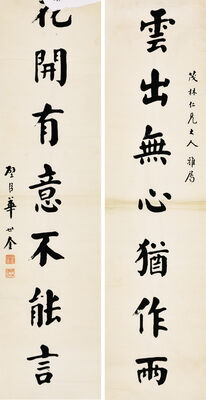 茂林仁兄大人雅屬
雲出無心猶作雨
花開有意不能言
華世奎